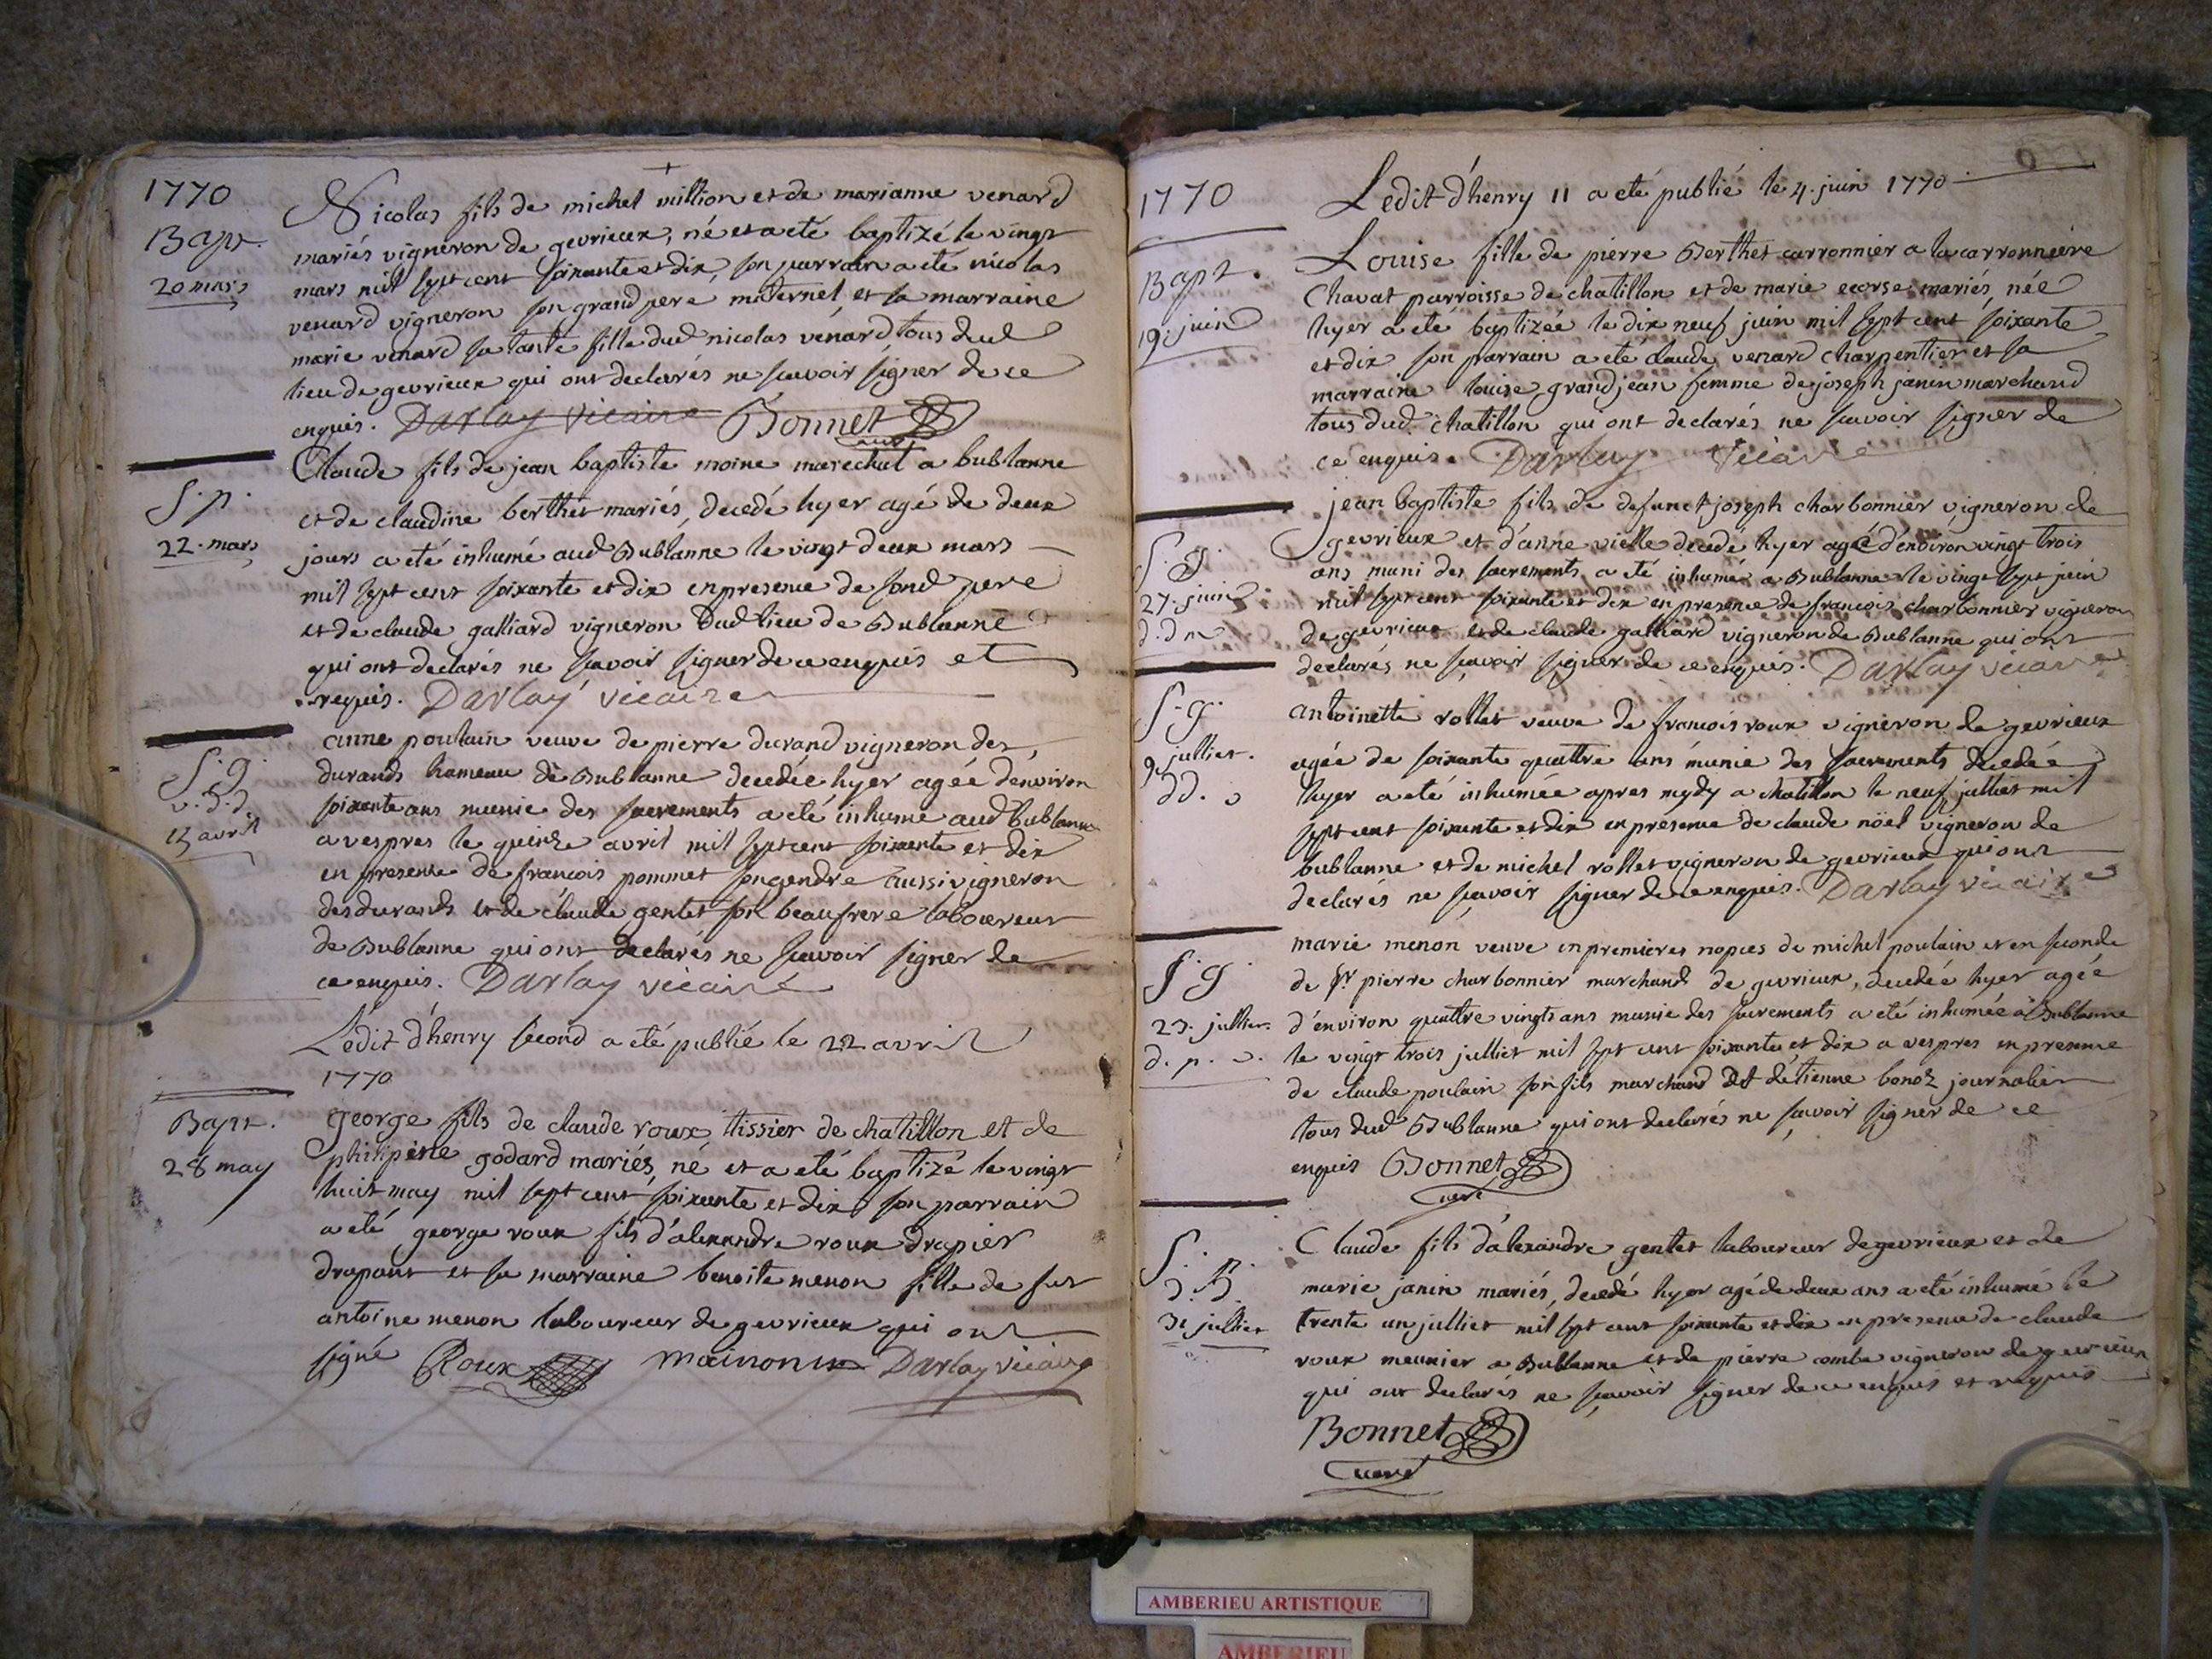 1770
Bapt.
20 mars
Nicolas fils de michel million et de marianne venard
mariés vigneron de gevrieux, né et a eté baptizé le vingt
mars mil sept cent soixante et dix, son parrain a eté nicolas
venard vigneron son grand pere maternel, et sa marraine
marie venard sa tante fille dud nicolas venard tous dud
lieu de gevrieux qui ont declarés ne scavoir signer de ce
enquis. Darlay vicaire Bonnet
curé
S. p.
22. mars
Claude fils de jean baptiste moine marechal a bublanne
et de claudine berthet mariés, decedé hyer agé de deux
jours a eté inhumé aud Bublanne le vingt deux mars
mil sept cent soixante et dix en presence de sond pere
et de claude galliard vigneron dud lieu de Bublanne
qui ont declarés ne scavoir signer de ce enquis et
requis. Darlay vicaire
S. g.
v. d. d.
15 avril
anne poulain veuve de pierre durand vigneron des
durands hameau de Bublanne decedée hyer agée d'environ
soixante ans munie des sacrements a eté inhumé aud Bublanne
a vespres le quinze avril mil sept cent soixante et dix
en presence de francois pommet son gendre aussi vigneron
des durands et de claude gentet son beaufrere laboureur
de Bublanne qui ont declarés ne scavoir signer de
ce enquis. Darlay vicaire
L'edit d'henry second a eté publié le 22 avril
1770
Bapt.
28 may
george fils de claude roux tissier de chatillon et de
philipine godard mariés, né et a eté baptizé le vingt
huit may mil sept cent soixante et dix son parrain
a eté george roux fils d'alexandre roux drapier
drapant et sa marraine benoite menon fille de fut
antoine menon laboureur de gevrieux qui ont
signé Roux Darlay vicaire
1770
L'edit d'henry II a eté publié le 4. juin 1770
Bapt.
19. juin
Louise fille de pierre Berthet carronnier a la carronniere
Chavat parroisse de chatillon et de marie ecorse mariés, née
hyer a eté baptizée le dix neuf juin mil sept cent soixante
et dix son parrain a eté claude venard charpentier et sa
marraine louise grandjean femme de joseph janin marchand
tous dud. chatillon qui ont declarés ne scavoir signer de
ce enquis. Darlay vicaire
S. g.
27. juin
jean baptiste fils de defunct joseph charbonnier vigneron de
gevrieux et d'anne vielle decedé hyer agé d'environ vingt trois
ans muni des sacrements a eté inhumé a Bublanne le vingt sept juin
mil sept cent soixante et dix en presence de francois charbonnier vigneron
de gevrieux et de claude galliard vigneron de Bublanne qui ont
declarés ne scavoir signer de ce enquis. Darlay vicaire
S. g.
9 julliet.
dd.
antoinette rollet veuve de francois roux vigneron de gevrieux
agée de soixante quattre ans munie des sacrements decedée
hyer a eté inhumée apres mydy a chatillon le neuf julliet mil
sept cent soixante et dix en presence de claude noël vigneron de
bublanne et de michel rollet vigneron de gevrieux qui ont
declarés ne scavoir signer de ce enquis. Darlay vicaire
S. g.
23. julliet.
d. p.
marie menon veuve en premieres nopces de michel poulain et en seconde
de sr. pierre charbonnier marchand de gevrieux, decedée hyer agée
d'environ quattre vingts ans munie des sacrements a eté inhumée a Bublanne
le vingt trois julliet mil sept cent soixante et dix a vespres en presence
de claude poulain son fils marchand et d'etienne bonoz journalier
tous dud Bublanne qui ont declarés ne scavoir signer de ce
enquis Bonnet
curé
S. p.
31 julliet
Claude fils d'alexandre gentet laboureur de gevrieux et de
marie janin mariés, decedé hyer agé de deux ans a eté inhumé le
trente un julliet mil sept cent soixante et dix en presence de claude
roux meunier a Bublanne et de pierre combe vigneron de gevrieux
qui ont declarés ne scavoir signer de ce enquis et requis
Bonnet
curé
AMBERIEU ARTISTIQUE
AMBERIEU